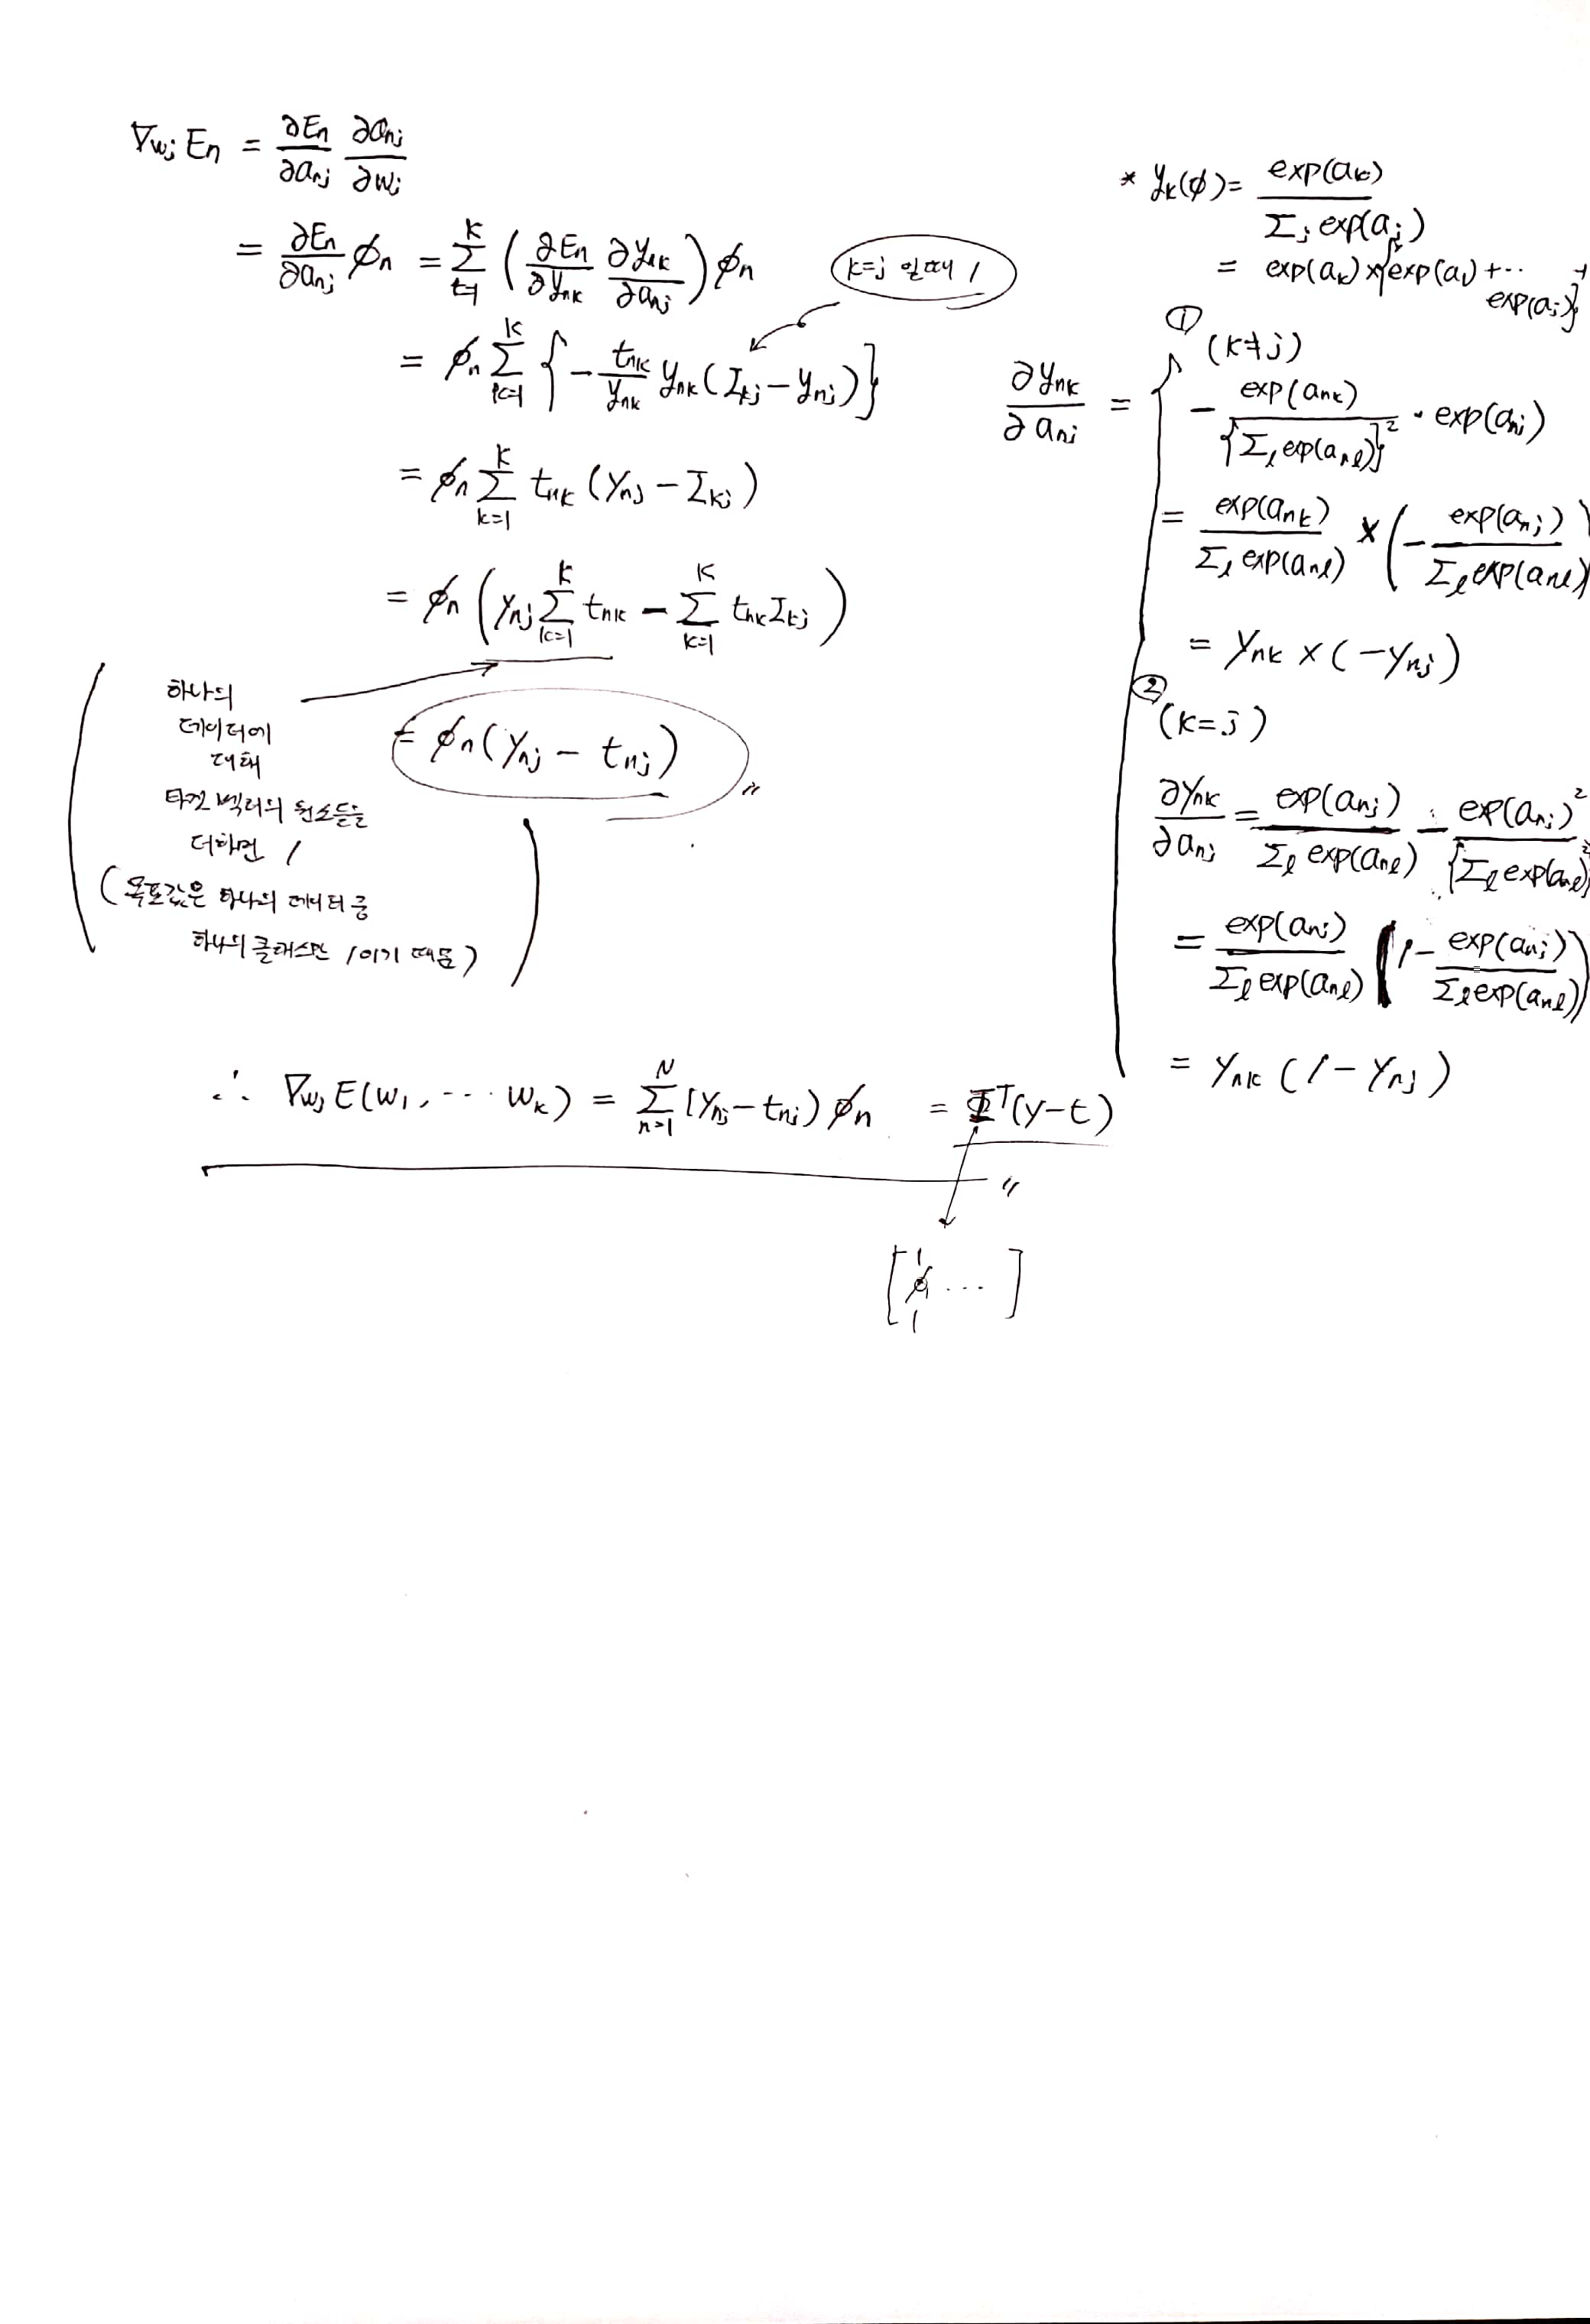 ∇wj En = ∂En/∂anj ∂anj/∂wj
= ∂En/∂anj φn = Σ(k=1..K) (∂En/∂ynk ∂ynk/∂anj) φn
k=j 일때 1
= φn Σ(k=1..K) {- tnk/ynk ynk (Ikj - ynj)}
= φn Σ(k=1..K) tnk (ynj - Ikj)
= φn (ynj Σ(k=1..K) tnk - Σ(k=1..K) tnk Ikj)
하나의
데이터에
대해
타겟 벡터의 원소들을
더하면 1
(목표값은 하나의 데이터 중
하나의 클래스만 1이기 때문)
= φn(ynj - tnj)
∴ ∇wj E(w1, ··· wk) = Σ(n=1..N) (ynj - tnj) φn = Φ^T(y-t)
[φ1 ···]
* yk(φ) = exp(ak) / Σj exp(aj)
= exp(ak) × {exp(a1) + ·· exp(aj)}^-1
∂ynk/∂anj =
① (k≠j)
- exp(ank) / {Σl exp(anl)}^2 · exp(anj)
= exp(ank) / Σl exp(anl) × (- exp(anj) / Σl exp(anl))
= ynk × (-ynj)
② (k=j)
∂ynk/∂anj = exp(anj) / Σl exp(anl) - exp(anj)^2 / {Σl exp(anl)}^2
= exp(anj) / Σl exp(anl) (1 - exp(anj) / Σl exp(anl))
= ynk (1 - ynj)